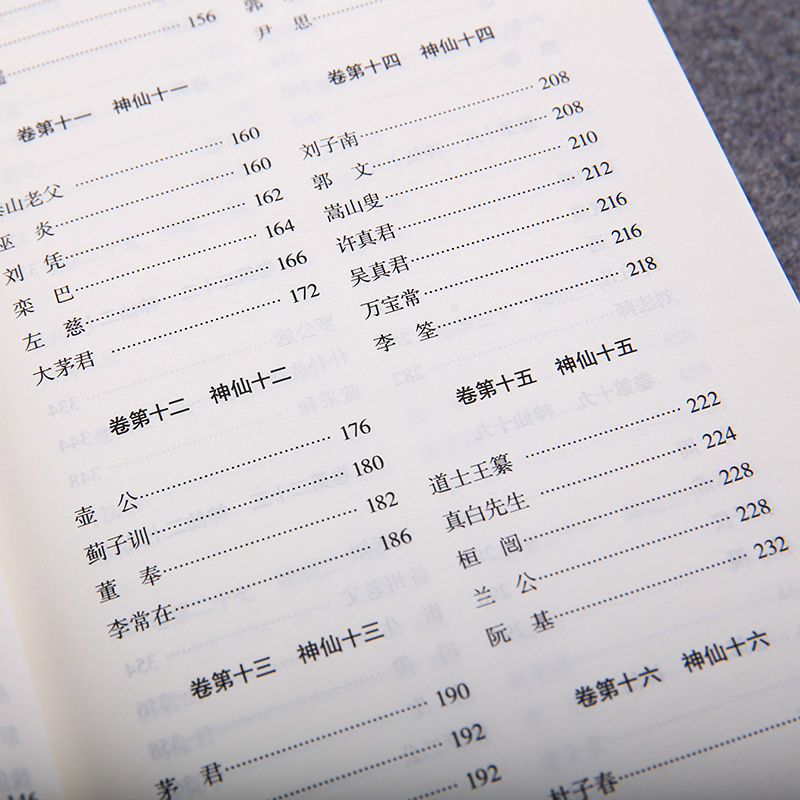 156
卷第十一 神仙十一
泰山老父 160
巫 炎 160
刘 凭 162
栾 巴 164
左 慈 166
大茅君 172
卷第十二 神仙十二
壶 公 176
蓟子训 180
董 奉 182
李常在 186
卷第十三 神仙十三
茅 君 190
192
192
郭
尹 思
卷第十四 神仙十四
刘子南 208
郭 文 208
嵩山叟 210
许真君 212
吴真君 216
万宝常 216
李 筌 218
卷第十五 神仙十五
道士王纂 222
真白先生 224
桓 闿 228
兰 公 228
阮 基 232
卷第十六 神仙十六
杜子春